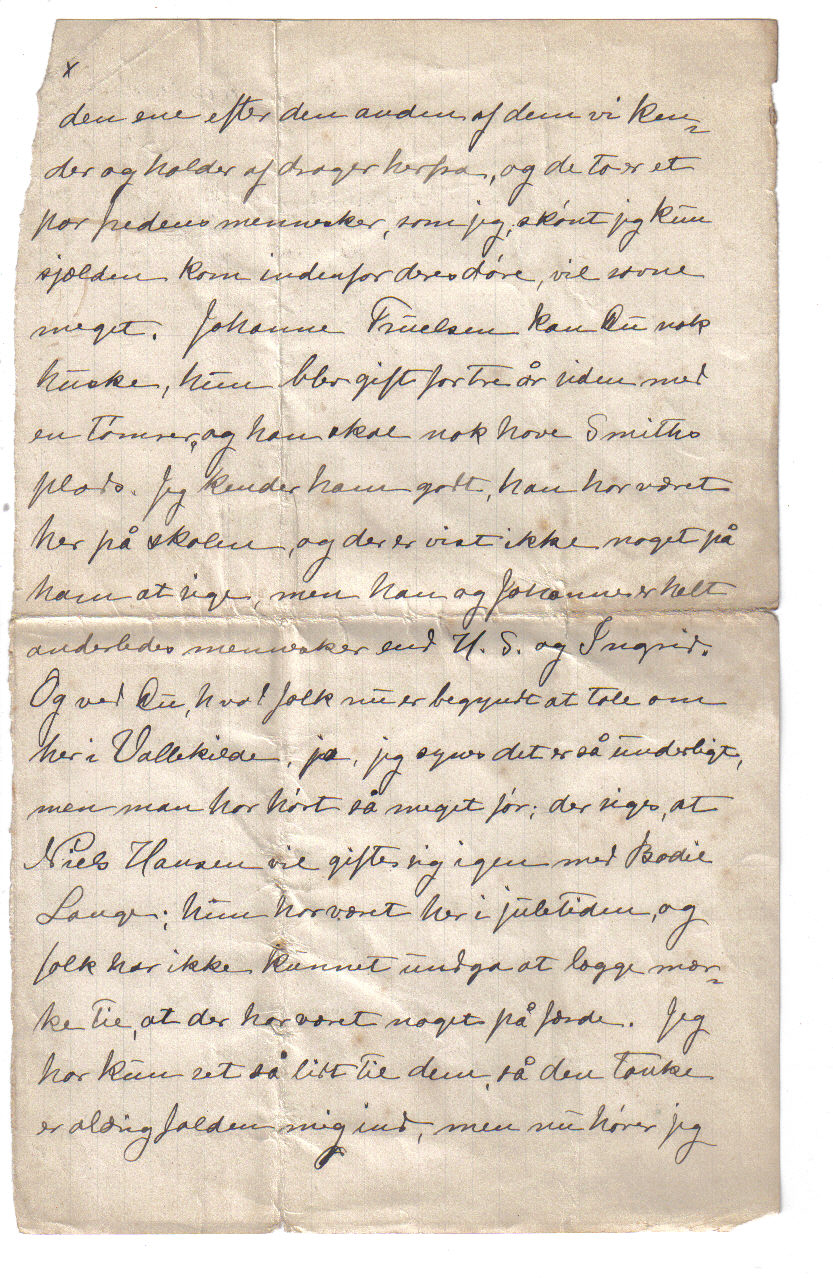 x
den ene efter den anden af dem vi ken=
der og holder af drager herfra, og de to er et
par fredens mennesker, som jeg, skönt jeg kun
sjælden kom indenfor deres döre, vil savne
meget. Johanne Truelsen kan Du nok
huske, hun blev gift for tre år siden med
en tömrer, og han skal nok have Smiths
plads. Jeg kender ham godt, han har været
her på skolen, og der er vist ikke noget på
ham at sige, men han og Johanne er helt
anderledes mennesker end H. S. og Ingrid.
Og ved Du, hvad folk nu er begyndt at tale om
her i Vallekilde, ja, jeg synes det er så underligt,
men man har hört så meget för; der siges, at
Niels Hansen vil gifte sig igen med Bodil
Lange; hun har været her i juletiden, og
folk har ikke kunnet undgå at lægge mær=
ke til, at der har været noget på færde. Jeg
har kun set så lidt til dem, så den tanke
er aldrig falden mig ind, men nu hörer jeg